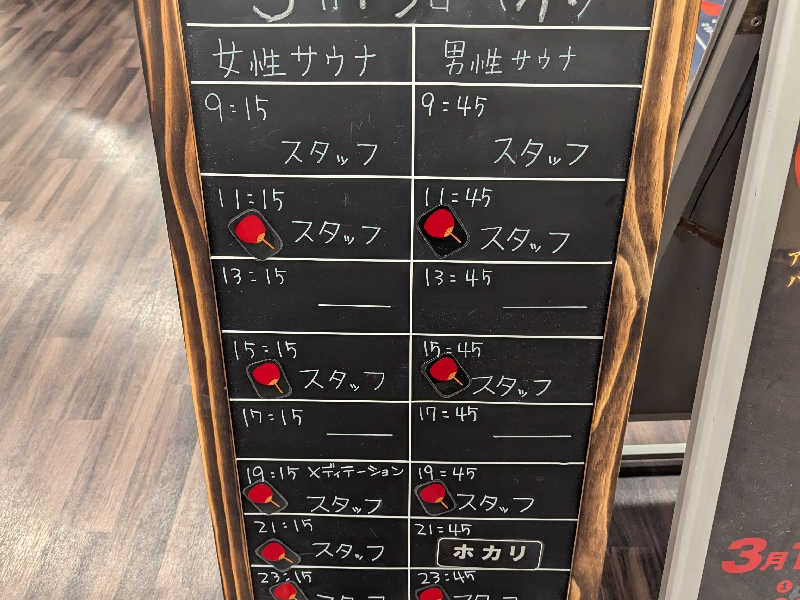 女性サウナ 男性サウナ
9:15 9:45
スタッフ スタッフ
11:15 11:45
スタッフ スタッフ
13:15 13:45
15:15 15:45
スタッフ スタッフ
17:15 17:45
19:15 メディテーション 19:45
スタッフ スタッフ
21:15 21:45
スタッフ ホカリ
23:15 23:45
3月1